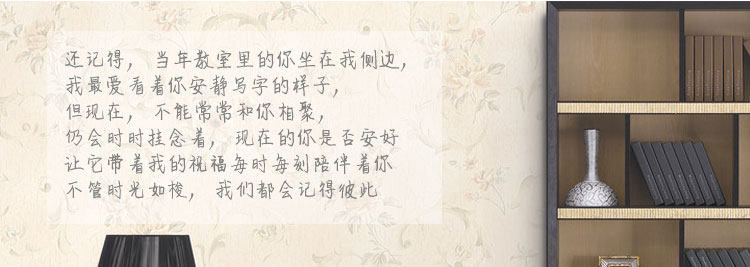 还记得， 当年教室里的你坐在我侧边，
我最爱看着你安静写字的样子，
但现在，不能常常和你相聚，
仍会时时挂念着，现在的你是否安好
让它带着我的祝福每时每刻陪伴着你
不管时光如梭， 我们都会记得彼此